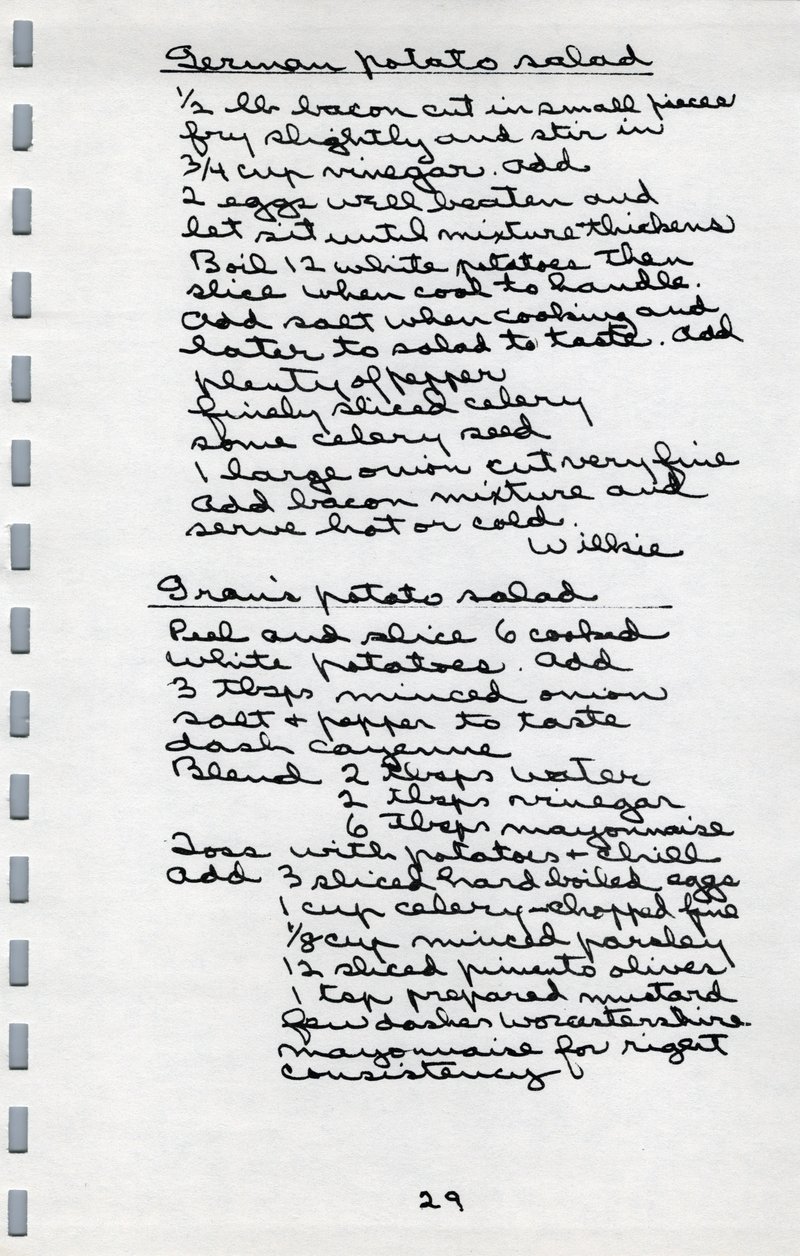 German potato salad
1/2 lb bacon cut in small pieces
fry slightly and stir in
3/4 cup vinegar. add
2 eggs well beaten and
let sit until mixture thickens
Boil 12 white potatoes then
slice when cool to handle.
add salt when cooking and
later to salad to taste. add
plenty of pepper
finely sliced celery
some celery seed
1 large onion cut very fine
add bacon mixture and
serve hot or cold.
Willsie
Gran's potato salad
Peel and slice 6 cooked
white potatoes. add
3 tbsps minced onion
salt + pepper to taste
dash cayenne
Blend 2 tbsps water
2 tbsps vinegar
6 tbsps mayonnaise
Toss with potatoes + chill
add 3 sliced hard boiled eggs
1 cup celery-chopped fine
1/8 cup minced parsley
12 sliced pimento olives
1 tsp prepared mustard
few dashes worcestershire.
mayonnaise for right
consistency
29